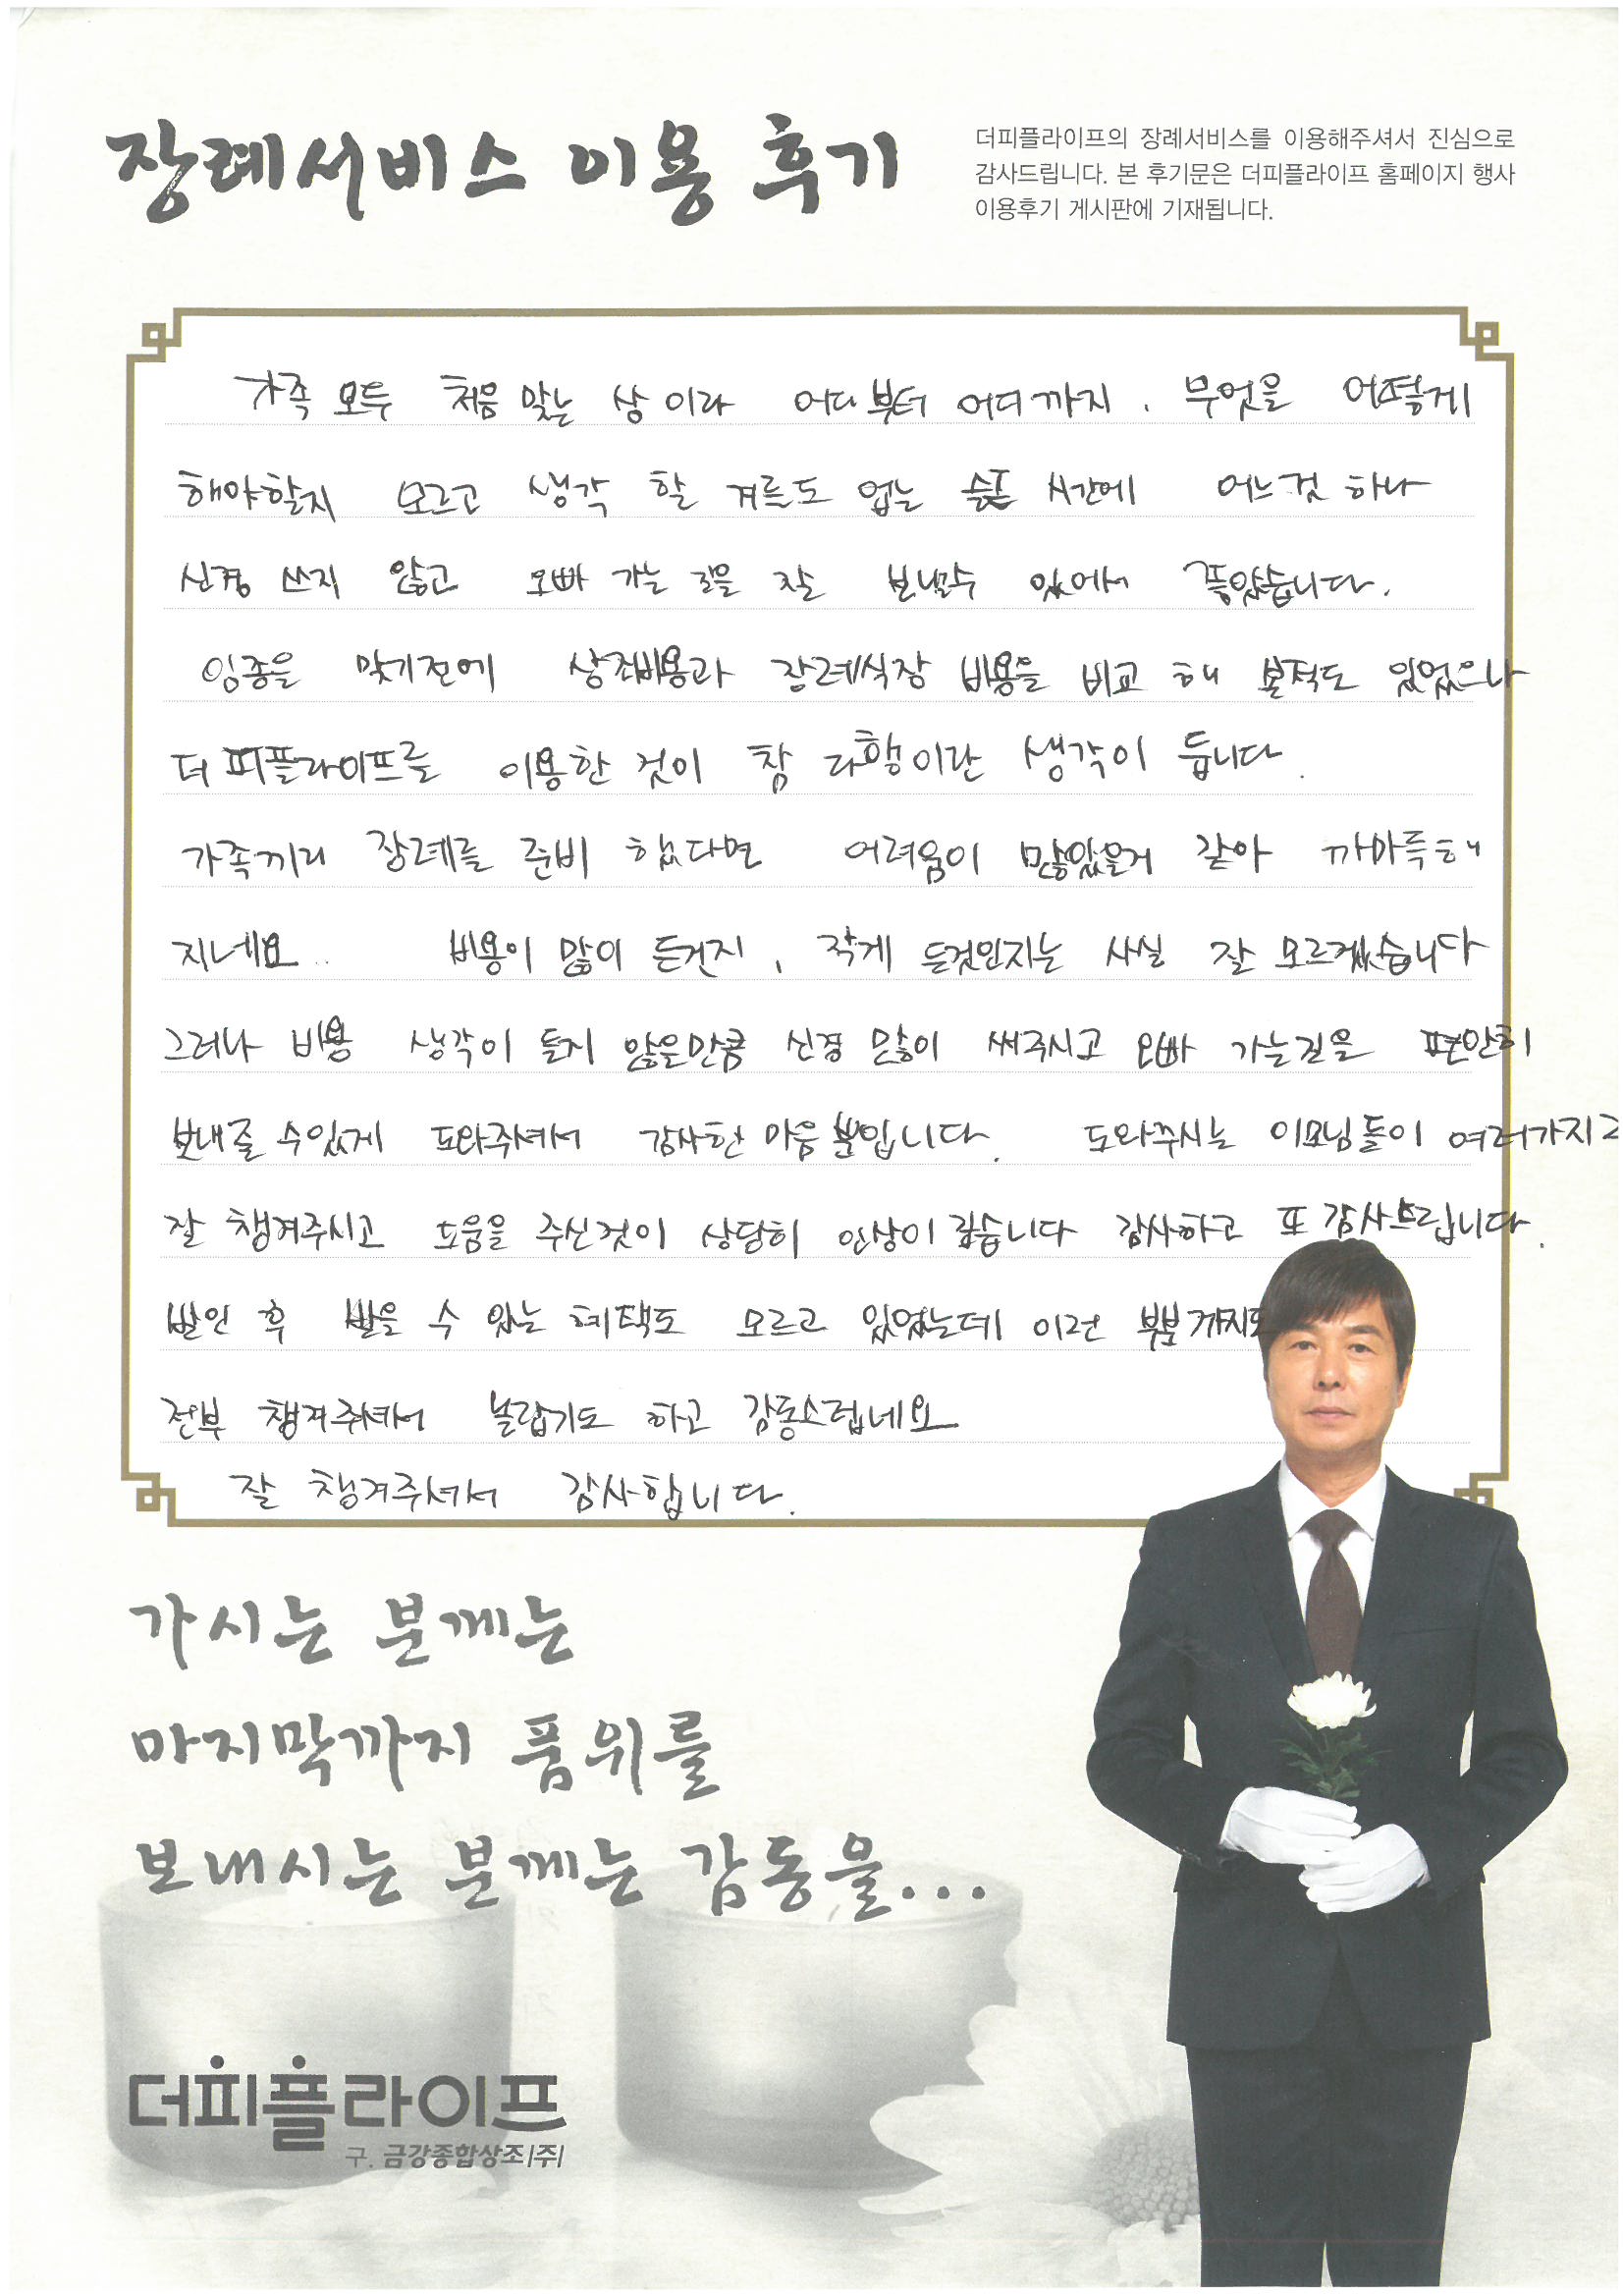 장례서비스 이용 후기
더피플라이프의 장례서비스를 이용해주셔서 진심으로
감사드립니다. 본 후기문은 더피플라이프 홈페이지 행사
이용후기 게시판에 기재됩니다.
가족 모두 처음 맞는 상 이라 어디부터 어디까지, 무엇을 어떻게
해야할지 모르고 생각 할 겨르도 없는 슬픈 시간에 어느것 하나
신경 쓰지 않고 오빠 가는 길을 잘 보낼수 있어서 좋았습니다.
임종을 맞기전에 상조비용과 장례식장 비용을 비교 해 본적도 있었으나
더피플라이프를 이용한 것이 참 다행이란 생각이 듭니다.
가족끼리 장례를 준비 했다면 어려움이 많았을거 같아 까마득해
지네요.. 비용이 많이 든건지, 작게 든것인지는 사실 잘 모르겠습니다
그러나 비용 생각이 들지 않은만큼 신경 많이 써주시고 오빠 가는길을 편안히
보내줄 수있게 도와주셔서 감사한 마음 뿐입니다. 도와주시는 이모님들이 여러가지로
잘 챙겨주시고 도움을 주신것이 상당히 인상이 깊습니다 감사하고 또 감사드립니다.
발인 후 받을 수 있는 혜택도 모르고 있었는데 이런 부분까지도
전부 챙겨줘서 놀랍기도 하고 감동스럽네요
잘 챙겨주셔서 감사합니다.
가시는 분께는
마지막까지 품위를
보내시는 분께는 감동을...
더피플라이프
구. 금강종합상조(주)